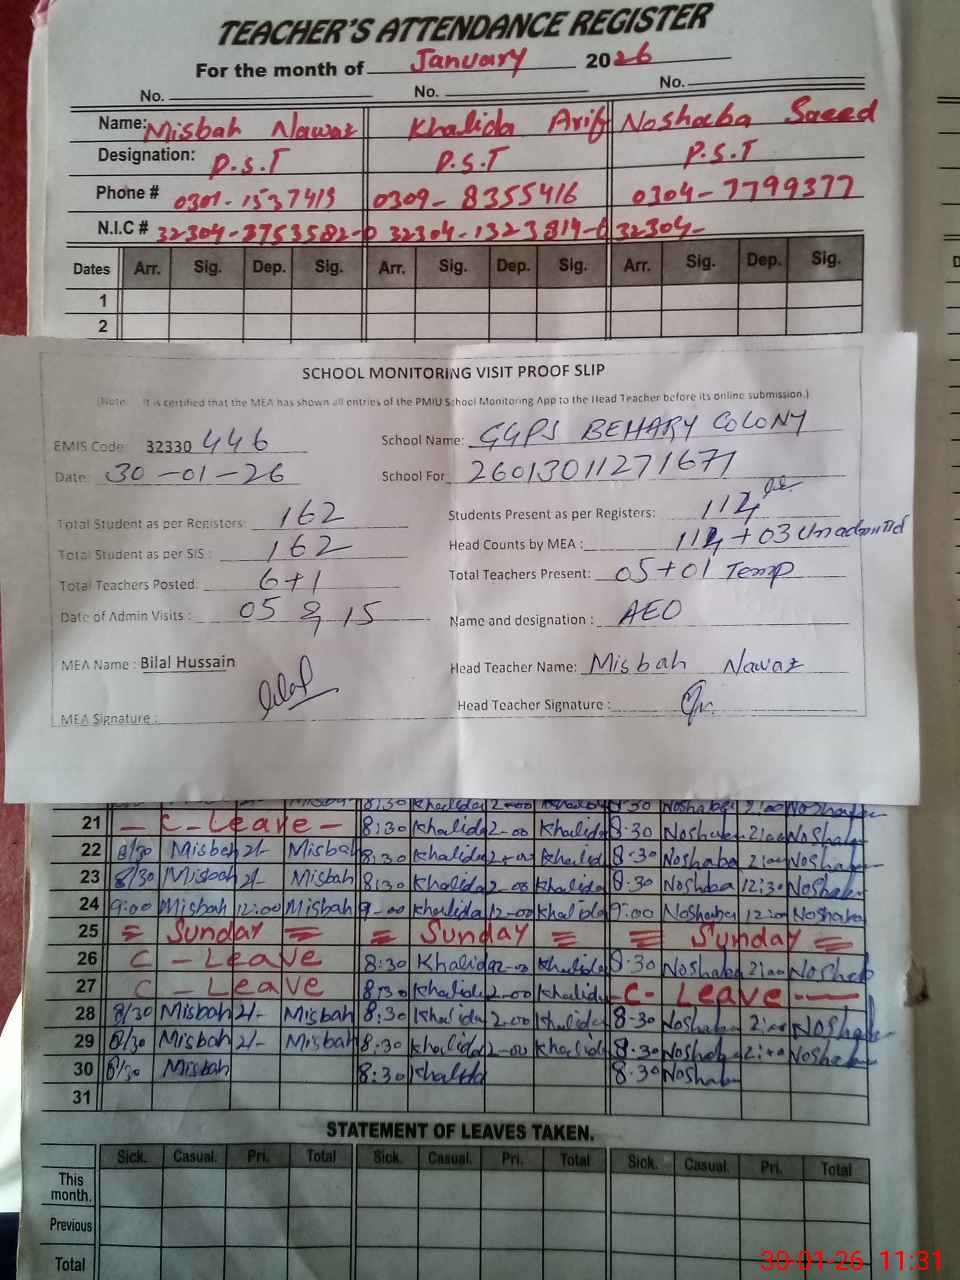 TEACHER'S ATTENDANCE REGISTER
For the month of January 2026
No. No. No.
Name: Misbah Nawaz Khalida Arif Noshaba Saeed
Designation: P.S.T P.S.T P.S.T
Phone # 0301-1537419 0309-8355416 0304-7799377
N.I.C # 32304-8753582-0 32304-1323814-0 32304-
Dates Arr. Sig. Dep. Sig. Arr. Sig. Dep. Sig. Arr. Sig. Dep. Sig.
1
2
SCHOOL MONITORING VISIT PROOF SLIP
(Note: It is certified that the MEA has shown all entries of the PMIU School Monitoring App to the Head Teacher before its online submission.)
EMIS Code: 32330 446 School Name: GGPS BEHARY COLONY
Date: 30-01-26 School For 26013011271671
Total Student as per Registers: 162 Students Present as per Registers: 114
Total Student as per SIS: 162 Head Counts by MEA: 114 + 03 Unadmitted
Total Teachers Posted: 6+1 Total Teachers Present: 05+01 Temp
Date of Admin Visits: 05 & 15 Name and designation: AEO
MEA Name: Bilal Hussain Head Teacher Name: Misbah Nawaz
MEA Signature: Bilal Head Teacher Signature:
8:30 Khalida 2-00 Khalida 8-30 Noshaba 2:00 Noshaba
21 - C-Leave - 8:30 Khalida 2-00 Khalida 8-30 Noshaba 2:00 Noshaba
22 8/30 Misbah 2/- Misbah 8:30 Khalida 2-00 Khalida 8-30 Noshaba 2:00 Noshaba
23 8/30 Misbah 2/- Misbah 8:30 Khalida 2-00 Khalida 8:30 Noshaba 12:30 Noshaba
24 9:00 Misbah 12:00 Misbah 9-00 Khalida 12-00 Khalida 9:00 Noshaba 12:00 Noshaba
25 = Sunday = = Sunday = = Sunday =
26 C - Leave 8:30 Khalida 2-00 Khalida 8:30 Noshaba 2:00 Noshaba
27 C - Leave 8:30 Khalida 2-00 Khalida -C- Leave -
28 8/30 Misbah 2/- Misbah 8:30 Khalida 2-00 Khalida 8-30 Noshaba 2:00 Noshaba
29 8/30 Misbah 2/- Misbah 8:30 Khalida 2-00 Khalida 8.30 Noshaba 2:00 Noshaba
30 8/30 Misbah 8:30 Khalida 8-30 Noshaba
31
STATEMENT OF LEAVES TAKEN.
Sick. Casual. Pri. Total Sick. Casual. Pri. Total Sick. Casual. Pri. Total
This month.
Previous
Total
30-01-26 11:31